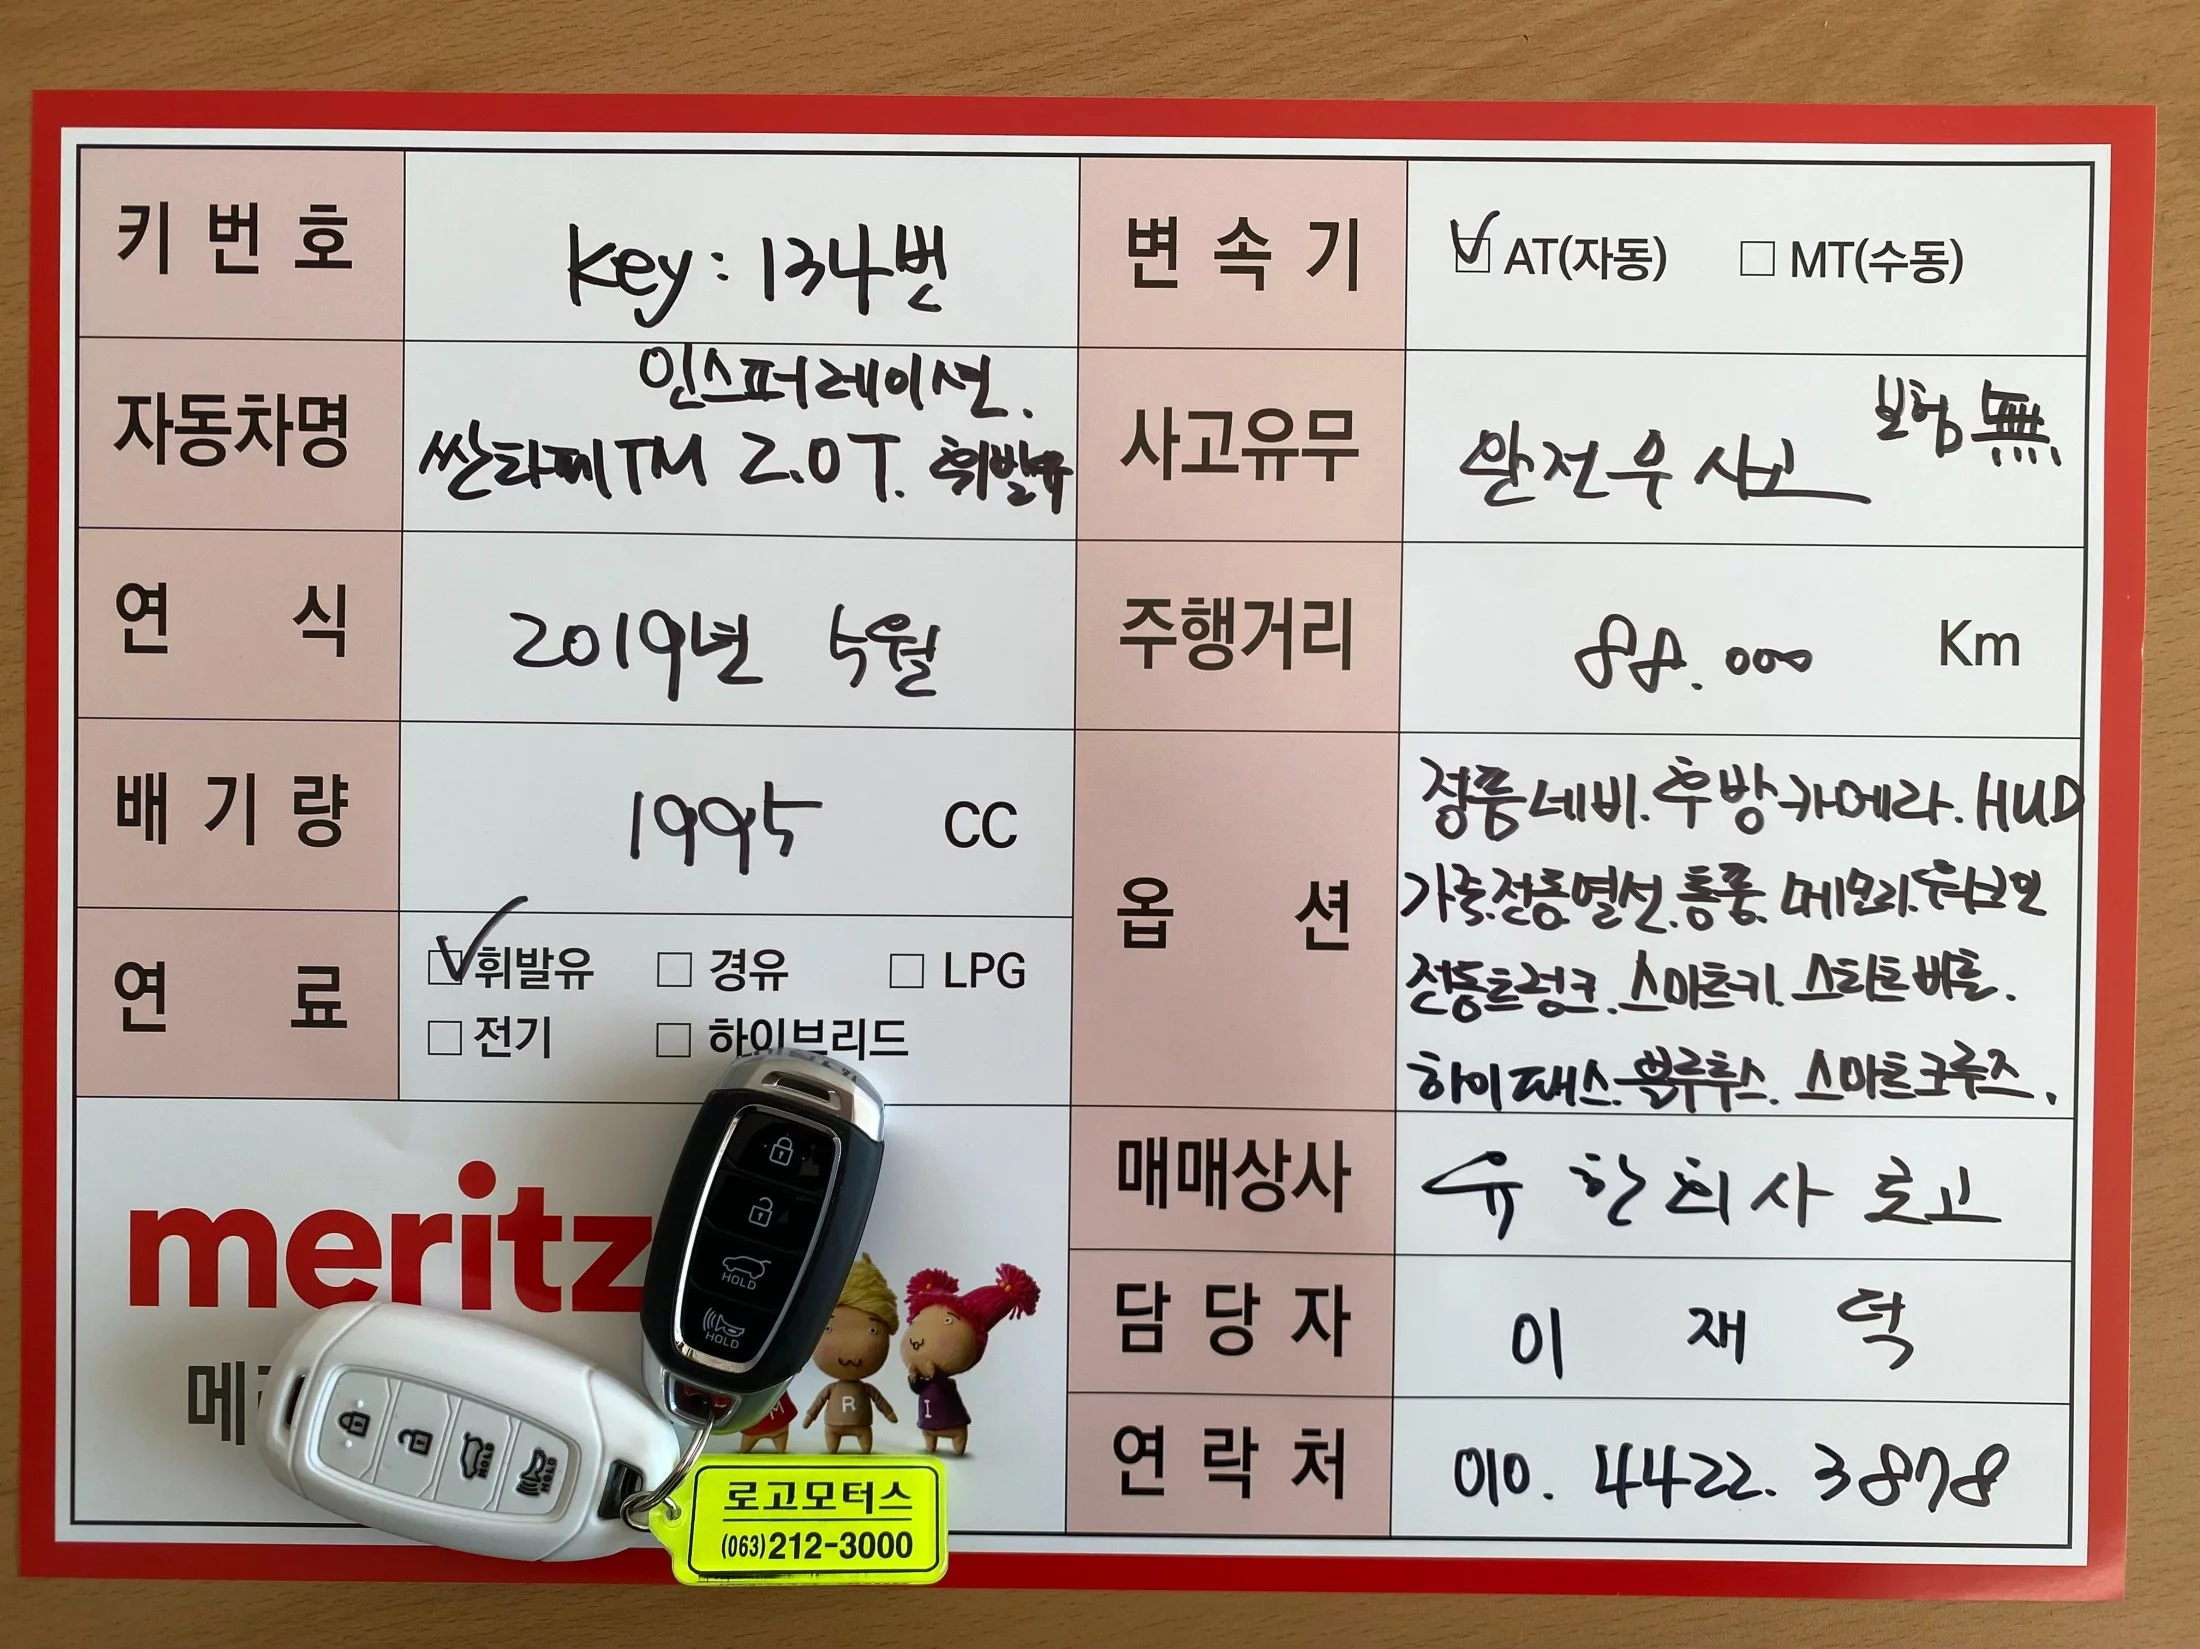 키 번 호
Key : 134번
변 속 기
AT(자동) MT(수동)
자동차명
인스퍼레이션.
싼타페TM 2.0T. 휘발유
사고유무
보험 無
완전무사고
연 식
2019년 5월
주행거리
88.000 Km
배 기 량
1995 CC
옵 션
정품네비. 후방카메라. HUD
가죽.전동.열선.통풍. 메모리.
전동트렁크. 스마트키. 스타트버튼.
하이패스. 블루투스. 스마트크루즈.
연 료
휘발유 경유 LPG
전기 하이브리드
매매상사
유한회사 로고
담 당 자
이 재 덕
연 락 처
010. 4422. 3878
meritz
메
M R I
HOLD
HOLD
HOLD
HOLD
로고모터스
(063)212-3000